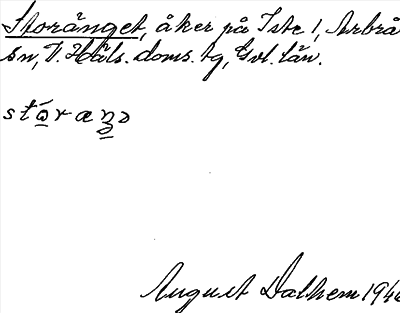 Storänget, åker på Iste 1, Arbrå
sn, V. Häls. doms. tg, Gvl. län.
August Dalhem 1946